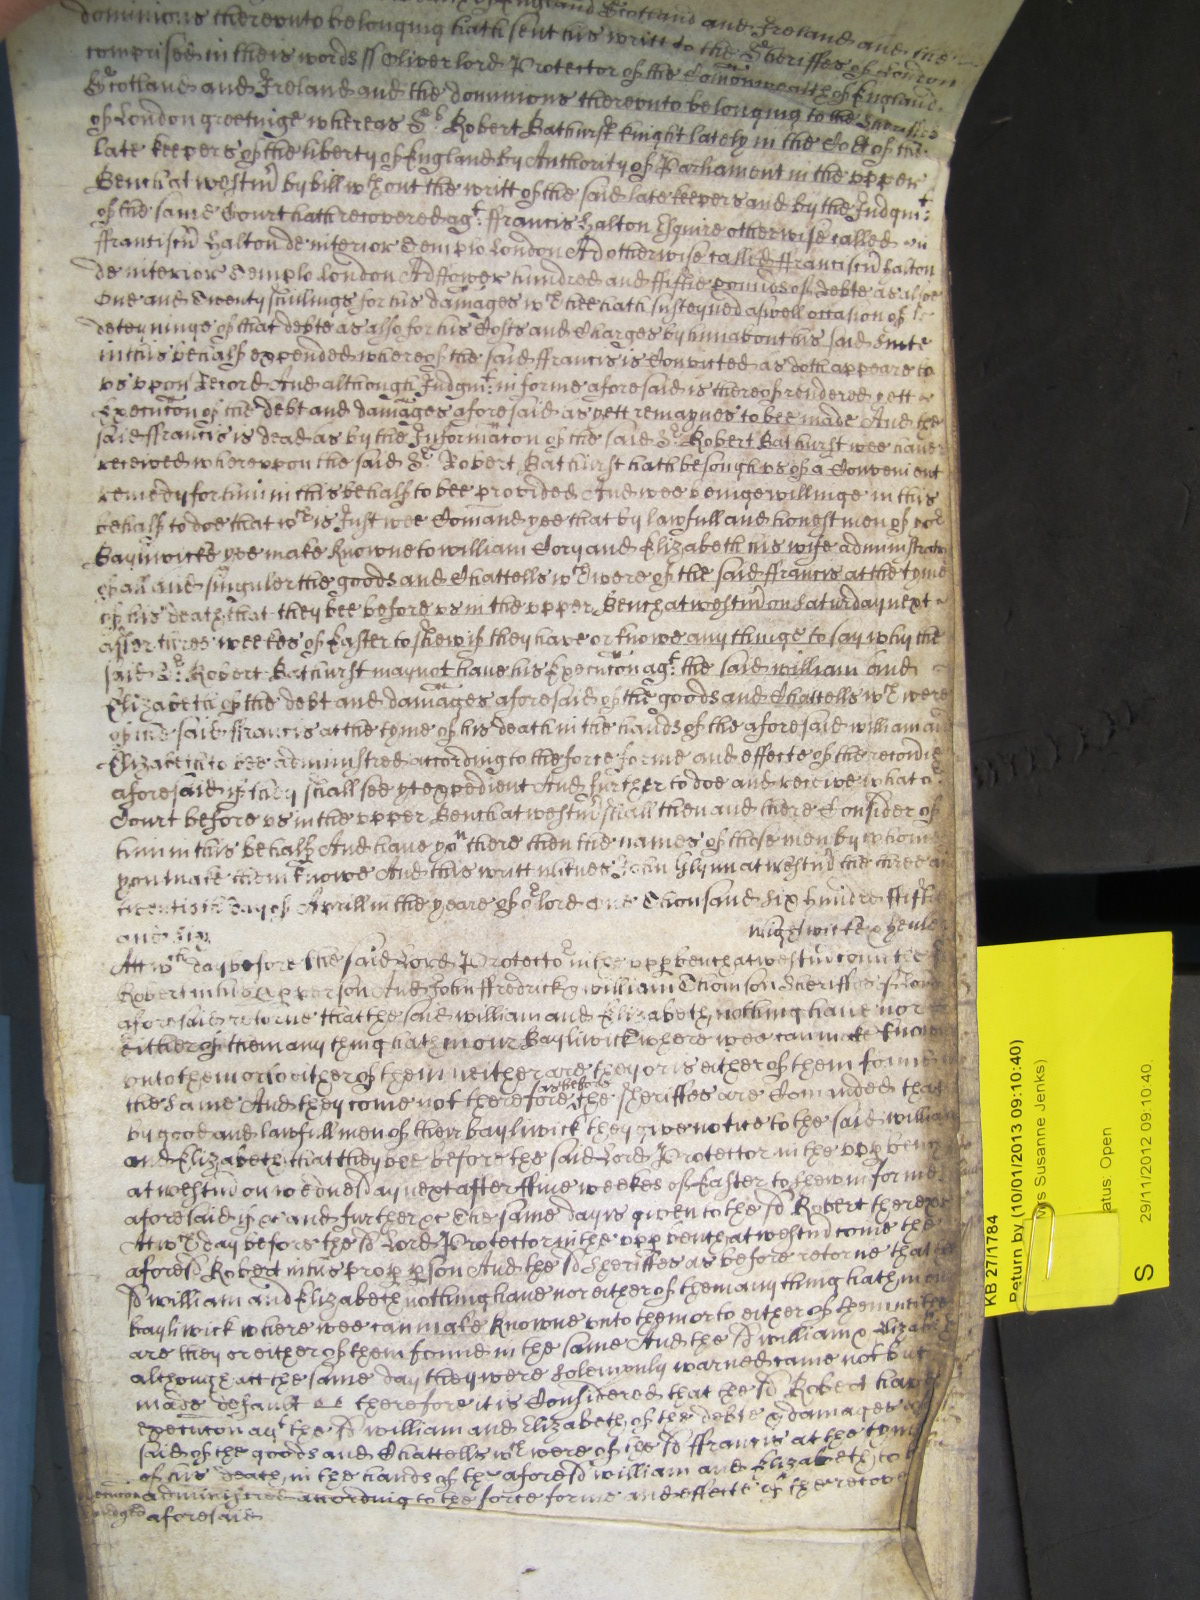 England Scotland and Ireland and the
dominions thereunto belonging hath sent his writt to the Sheriffes of London
comprised in theis words ss Oliver lord Protector of the Comonwealth of England
Scotland and Ireland and the dominions thereunto belonging to the Sheriffes
of London greetinge whereas Sr Robert Bathurst knight lately in the Cort of the
late keepers of the liberty of England by Authority of Parliament in the upper
Bench at westmr by bill wthout the writt of the said late keepers and by the Judgmt
of the same Court hath recovered agt ffrancis Halton Esquire otherwise called
ffranciscu Halton de interior Templo London Ar otherwise called ffranciscu Halton
de interior Templo London Ar ffower hundred and ffiftie pounds of debte as alsoe
One and Twenty shillings for his damages wch hee hath susteyned aswell occasion of the
deteyninge of that debte as also for his Costs and Charges by him about his said suite
in his behalf expended whereof the said ffrancis is Convicted as doth appeare to
us upon Record And although Judgmt in forme aforesaid is thereof rendered yett
Execucon of the debt and damages aforesaid as yett remaynes to bee made And the
said ffrancis is dead as by the Informacon of the said Sr Robert Bathurst wee have
received whereupon the said Sr Robert Bathurst hath besought us of a Convenient
remedy for him in this behalf to bee provided And wee beinge willinge in this
behalf to doe that wch is Just wee Comand yee that by lawfull and honest men of yor
Bayliwicke yee make knowne to william Cory and Elizabeth his wife administrators
of all and singuler the goods and Chattells wch were of the said ffrancis at the tyme
of his death that they bee before us in the upper Bench at westmr on Saturday next
after three weekes of Easter to shew if they have or knowe any thinge to say why the
said Sr Robert Bathurst may not have his Execucon agt the said william and
Elizabeth of the debt and damages aforesaid of the goods and Chattells wch were
of the said ffrancis at the tyme of his death in the hands of the aforesaid william and
Elizabeth to bee administred according to the force forme and effecte of the recoverie
aforesaid if they shall see yt expedient And further to doe and receive what or
Court before us in the upper Bench at westmr shall then and there Consider of
him in this behalf And have you there then the names of those men by whome
you make them knowe And this writt witnes John Glynn at westmr the three and
twentieth day of Aprill in the yeare of or lord one Thousand six hundred ffiftie
and six
wightwicke &
Att wch day before the said Lord Protector in the upp bench at westmr cometh the sd
Robert in his pp person And John ffredrick & william Thomson Sheriffes of London
aforesaid retorne that the said william and Elizabeth nothing have nor
either of them any thing hath in our Bayliwick where wee can make knowne
unto them or to either of them neither are they or is either of them found in
the same And they come not therefore as before the Sheriffes are Comanded that
by good and lawfull men of their bayliwick they give notice to the said william
and Elizabeth that they bee before the said Lord Protector in the upp bench
at westmr on wednesday next after ffive weekes of Easter to shew in forme
aforesaid if &c and further &c The same day is given to the sd Robert there &c
Att wch day before the sd Lord Protector in the upp bench at westmr come the
aforesd Robert in his prop pson And the sd Sheriffes as before retorne that the
sd william and Elizabeth nothing have nor either of them any thing hath in our
bayliwick where wee can make knowne unto them or to either of them neither
are they or either of them found in the same And the sd william & Elizabeth
although att the same day they were solemnly warned came not but
made default therefore it is Considered that the sd Robert have
execucon agt the sd william and Elizabeth of the debte & damages
said of the goods and Chattells wch were of the sd ffrancis at the tyme
of his death in the hands of the aforesd william and Elizabeth to bee
administred according to the force forme and effecte of the recovery
aforesaid
KB 27/1784
Return by (10/01/2013 09:10:40)
Susanne Jenks)
Open
S
29/11/2012 09:10:40